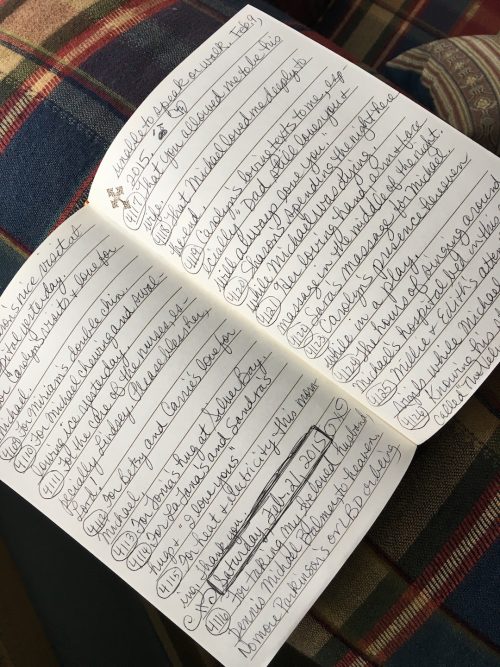 nice visit at
yesterday.
Carolyn's visits + love for
4109 For Miriam's double chin
4110 For Michael chewing and swal-
lowing ice yesterday.
4111 the care of the nurses, es-
pecially Lindsey. Please bless her,
Lord!
4112 For Betsy and Cassie's love for
Michael.
4113 For Tonia's hug at Silver Bay.
4114 For LaJana's and Sandra's
hugs + "I love yous"
4115 For heat + electricity this morn-
ing thank you
Saturday Feb. 21, 2015
4116 For taking my beloved husband
Dennis Michael Balmes to heaven
No more Parkinson's or LBD or being
unable to speak or walk. Feb 9,
2015.
4117 That you allowed me to be his
wife.
4118 That Michael loved me deeply to
4119 Carolyn's loving texts to me, esp-
cially "Dad still loves you +
will always love you."
4120 Sharon's spending the night here
while Michael was dying
4121 Her loving hand, arm + face
massage in the middle of the night.
4122 Sara's massage for Michael
4123 Carolyn's presence even
while in a play.
4124 The hours of singing aroun
Michael's hospital bed in the
4125 Millie + Edith's
Angels while Michael
4126 Knowing he
called